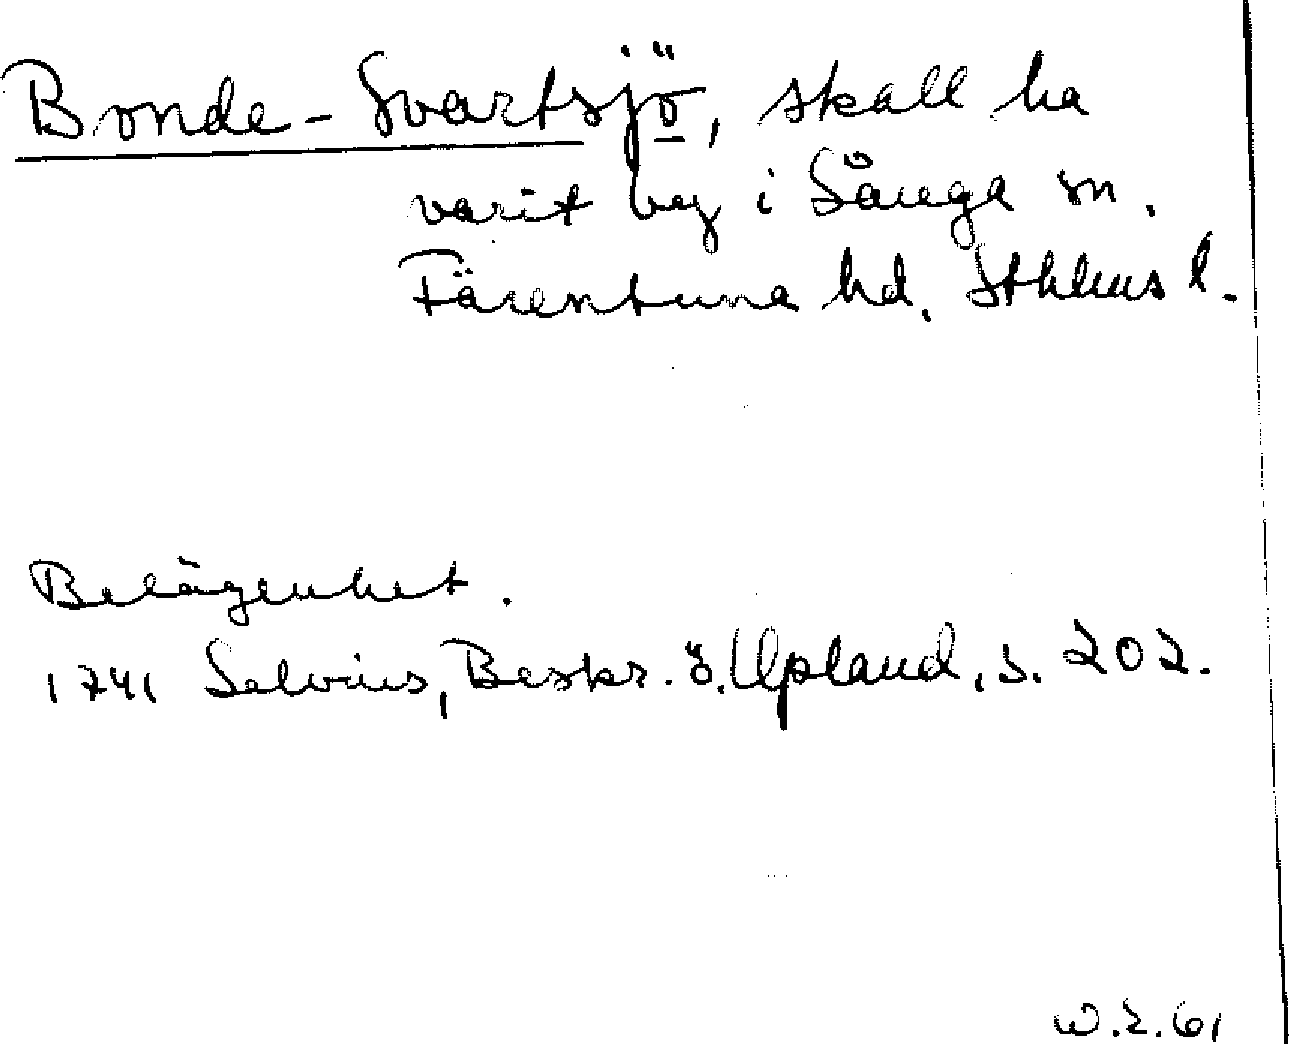 Bonde-Svartsjö, skall ha
varit by i Sånga sn.
Färentuna hd. Sthlms l.
Belägenhet.
1741 Salvius, Beskr. ö. Upland, s. 202.
W.Z.61